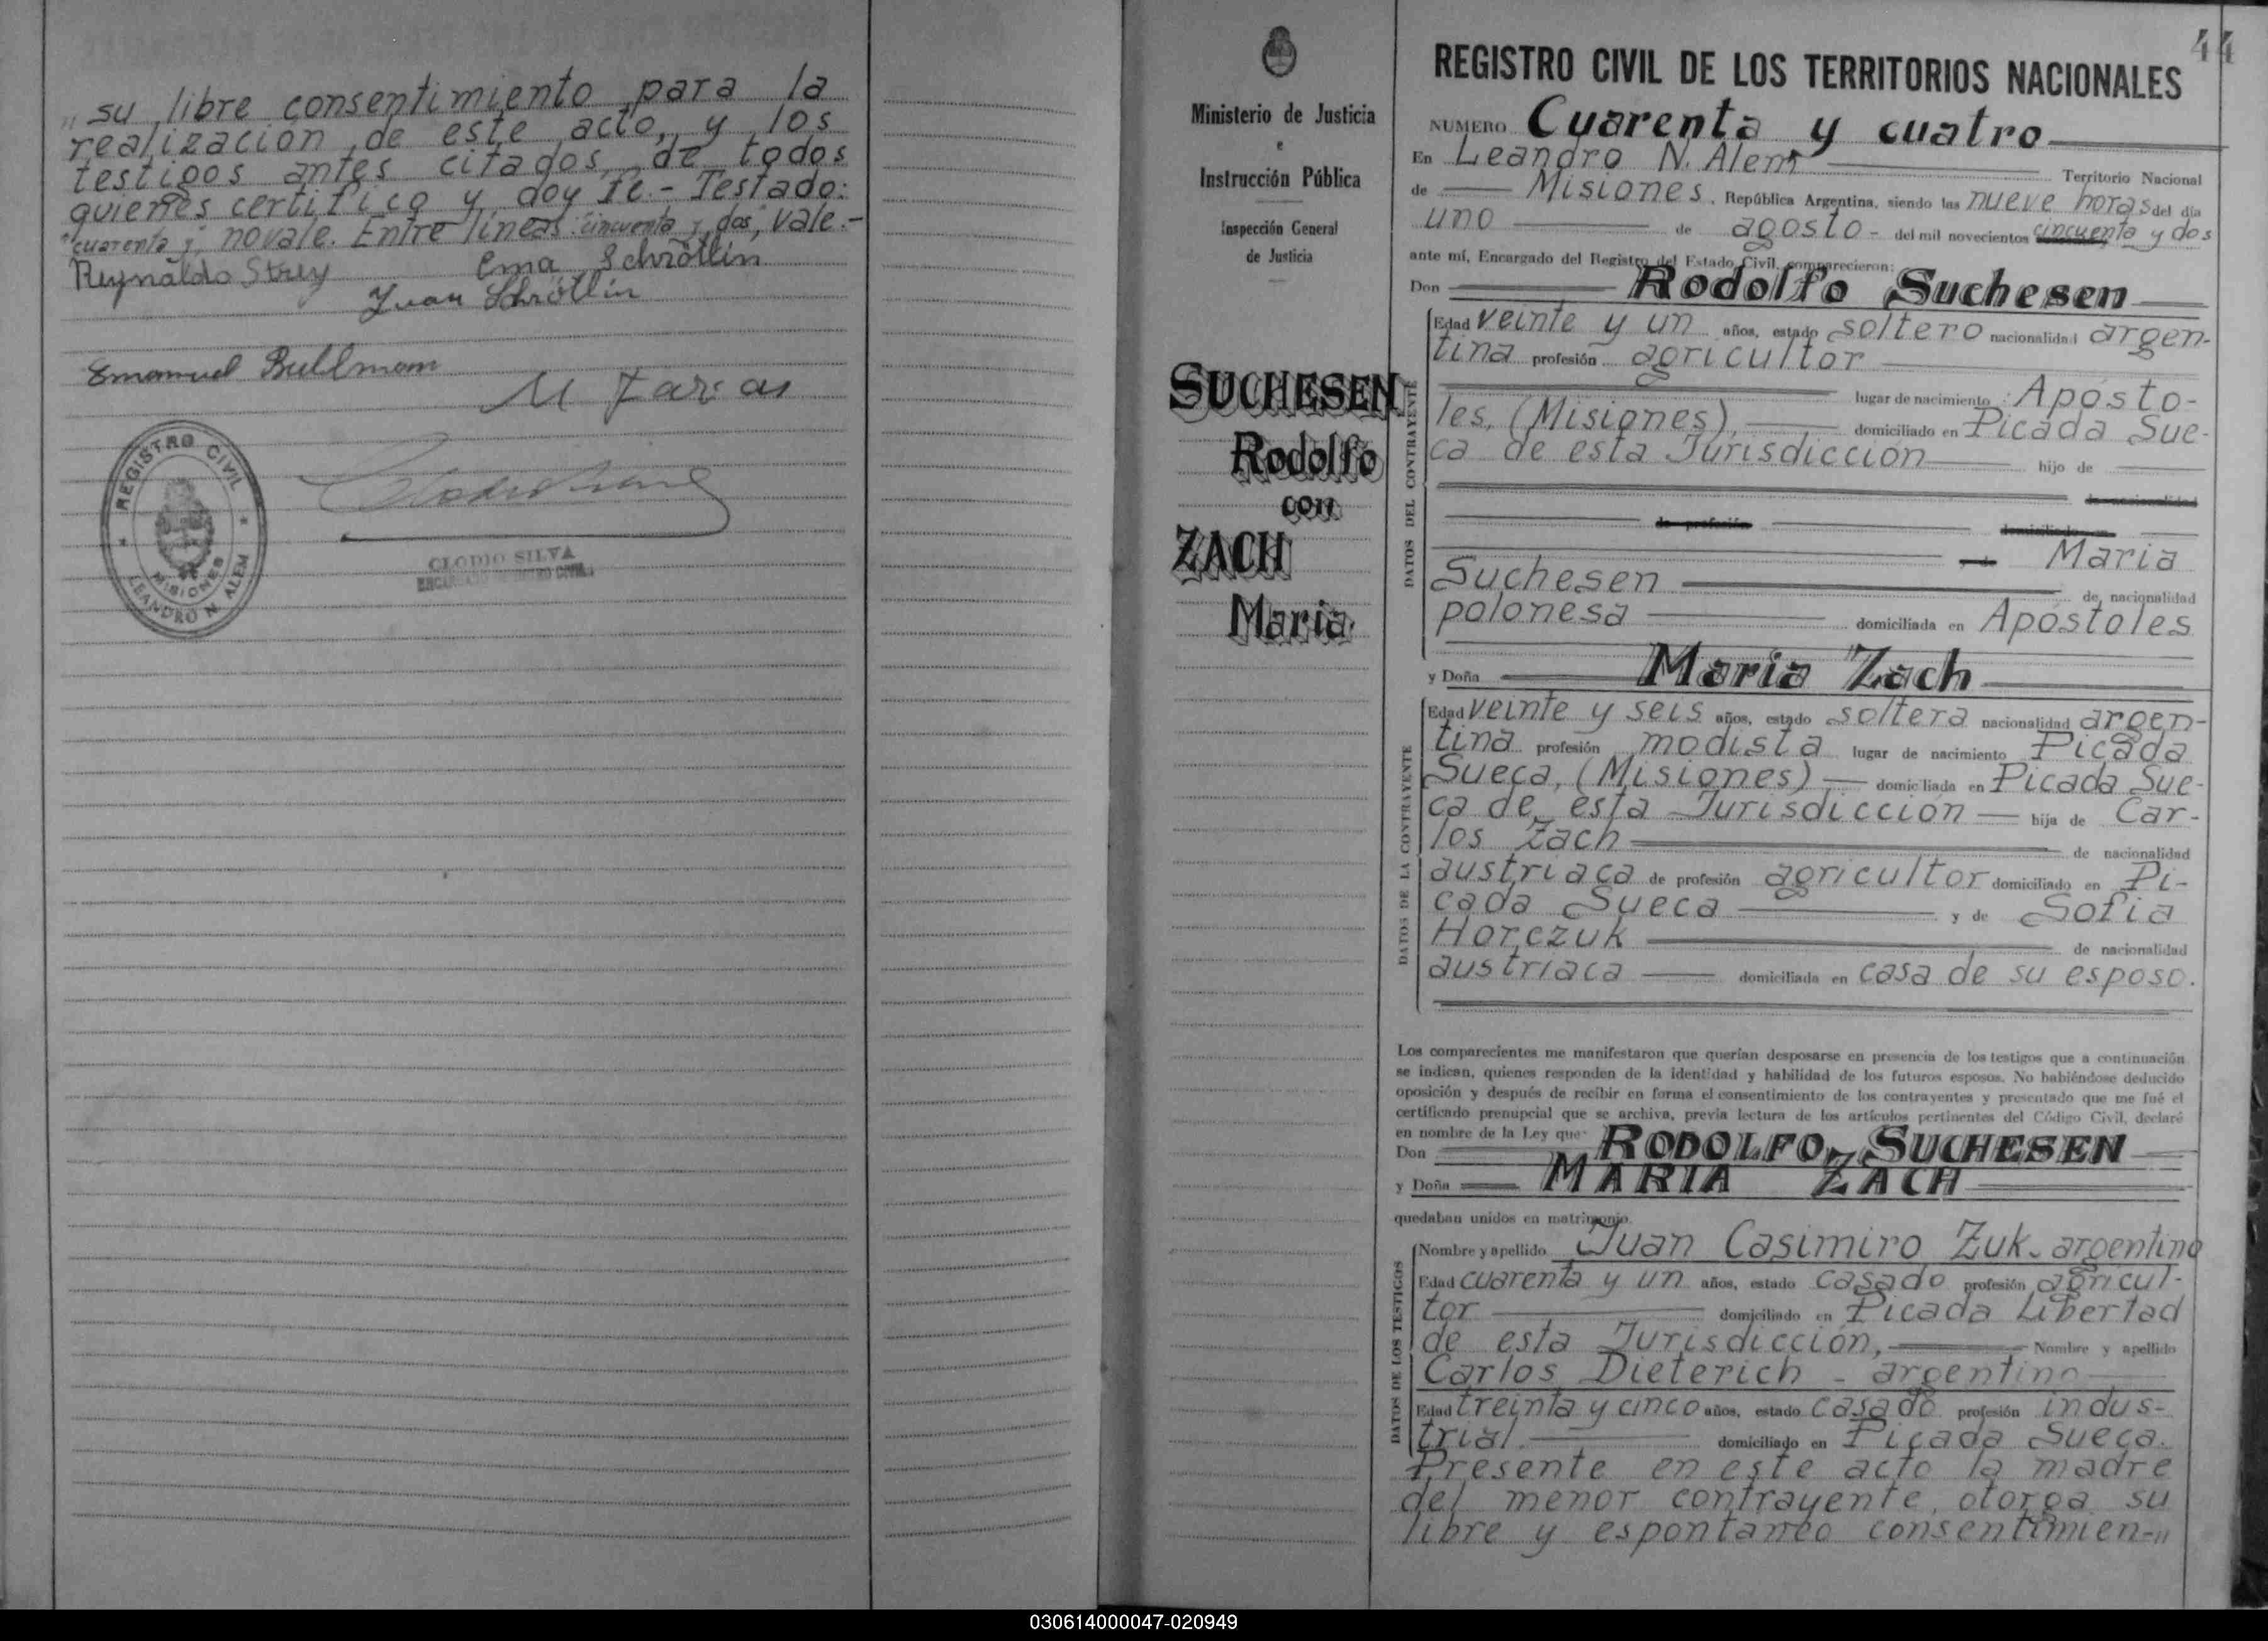 „ su libre consentimiento para la
realización de este acto, y los
testigos antes citados, de todos
quienes certifico y doy fe.- Testado:
"cuarenta y" no vale. Entre lineas: "cincuenta y dos", vale.-
Reynaldo Strey Ema Schrötlin
Juan Schrötlin
Emanuel Bullmann
REGISTRO CIVIL
MISIONES
LEANDRO N. ALEM
CLODIO SILVA
ENCARGADO REGISTRO CIVIL
Ministerio de Justicia
e
Instrucción Pública
Inspección General
de Justicia
SUCHESEN
Rodolfo
con
ZACH
Maria
44
REGISTRO CIVIL DE LOS TERRITORIOS NACIONALES
NUMERO Cuarenta y cuatro
En Leandro N. Alem Territorio Nacional
de Misiones, República Argentina, siendo las nueve horas del día
uno de agosto - del mil novecientos cincuenta y dos
ante mí, Encargado del Registro del Estado Civil, comparecieron:
Don Rodolfo Suchesen
DATOS DEL CONTRAYENTE
Edad veinte y un años, estado soltero nacionalidad argen-
tina profesión agricultor
lugar de nacimiento Aposto-
les, (Misiones), domiciliado en Picada Sue-
ca de esta Jurisdicción hijo de
de nacionalidad
de profesión domiciliado en
Maria
Suchesen de nacionalidad
polonesa domiciliada en Apóstoles
y Doña Maria Zach
DATOS DE LA CONTRAYENTE
Edad veinte y seis años, estado soltera nacionalidad argen-
tina profesión modista lugar de nacimiento Picada
Sueca, (Misiones) domiciliada en Picada Sue-
ca de esta Jurisdicción hija de Car-
los Zach de nacionalidad
austriaca de profesión agricultor domiciliado en Pi-
cada Sueca y de Sofia
Horczuk de nacionalidad
austriaca domiciliada en casa de su esposo.
Los comparecientes me manifestaron que querían desposarse en presencia de los testigos que a continuación
se indican, quienes responden de la identidad y habilidad de los futuros esposos. No habiéndose deducido
oposición y después de recibir en forma el consentimiento de los contrayentes y presentado que me fué el
certificado prenupcial que se archiva, previa lectura de los artículos pertinentes del Código Civil, declaré
en nombre de la Ley que
Don RODOLFO SUCHESEN
y Doña MARIA ZACH
quedaban unidos en matrimonio.
DATOS DE LOS TESTIGOS
Nombre y apellido Juan Casimiro Zuk - argentino
Edad cuarenta y un años, estado casado profesión agricul-
tor domiciliado en Picada Libertad
de esta Jurisdicción, Nombre y apellido
Carlos Dieterich - argentino
Edad treinta y cinco años, estado casado profesión indus-
trial. domiciliado en Picada Sueca.
Presente en este acto la madre
del menor contrayente, otorga su
libre y espontaneo consentimien-„
030614000047-020949